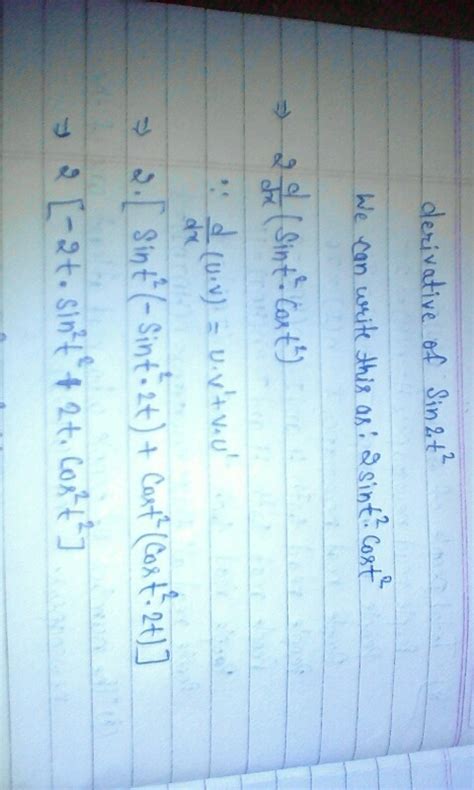 derivative of Sin2t²
We can write this as: 2sint²·Cost²
⇒ 2 d/dx (Sint²·Cost²)
∵ d/dx (u·v) = u·v' + v·u'
⇒ 2·[Sint²(-Sint²·2t) + Cost²(Cost²·2t)]
⇒ 2 [-2t·sin²t² + 2t·Cos²t²]